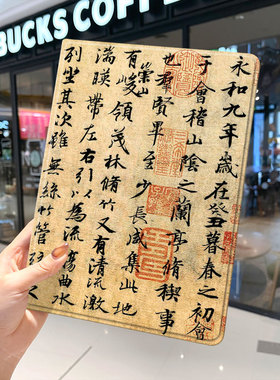 BUCKS COFFE
永和九年歲在癸丑暮春之初會
于會稽山陰之蘭亭脩稧事
也羣賢畢至少長咸集此地
有崇山峻領茂林脩竹又有清流激
湍暎帶左右引以為流觴曲水
列坐其次雖無絲竹管弦之